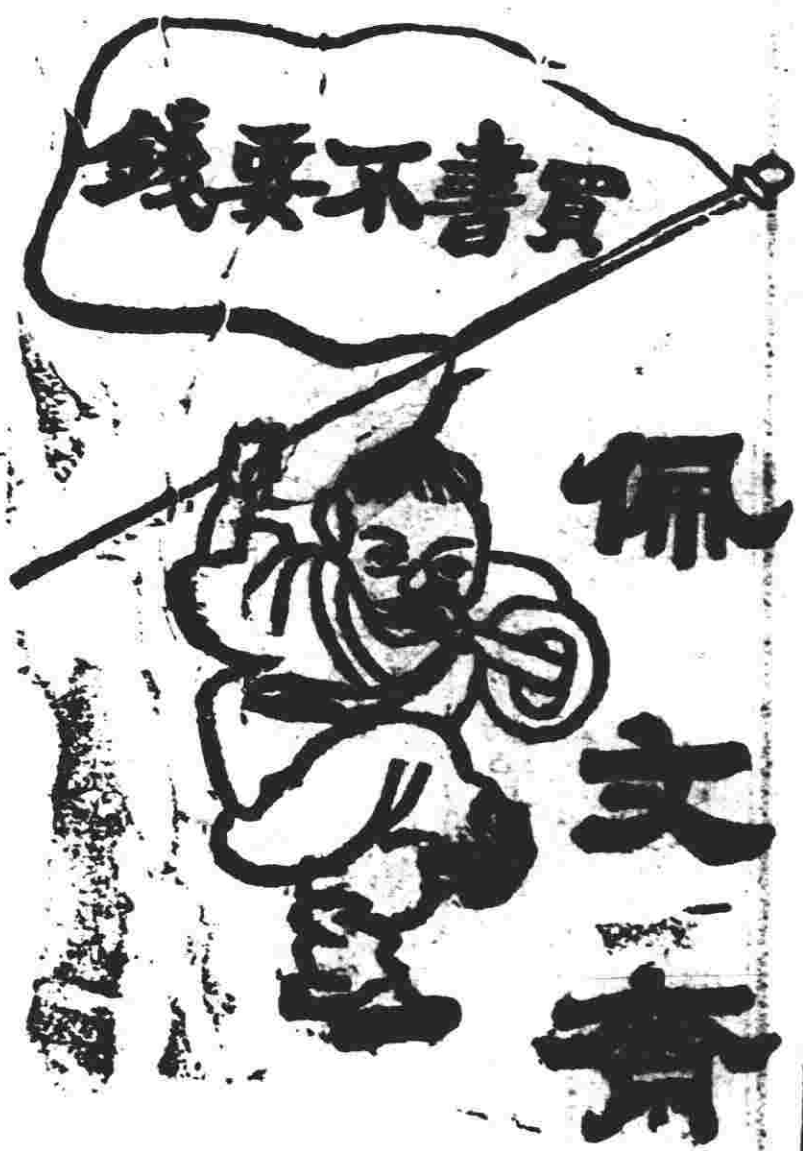 買書不要錢
佩文齋